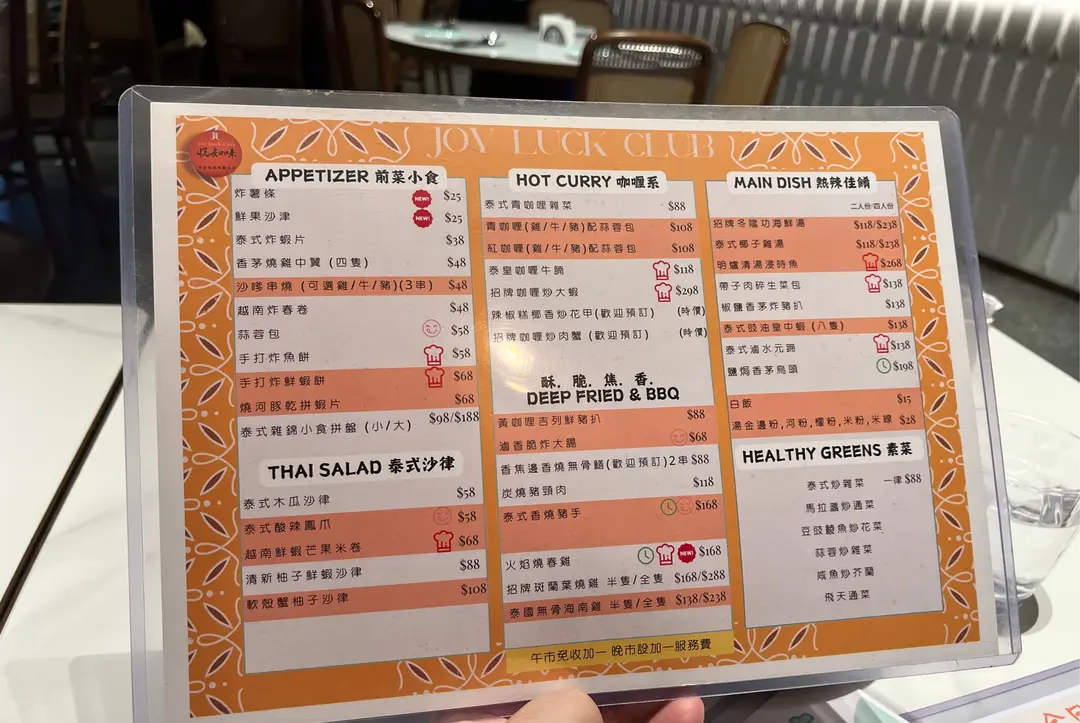 JOY LUCK CLUB
Joy Luck Club
APPETIZER 前菜小食
炸薯條 NEW! $25
鮮果沙津 NEW! $25
泰式炸蝦片 $38
香茅燒雞中翼 (四隻) $48
沙嗲串燒 (可選雞/牛/豬)(3串) $48
越南炸春卷 $48
蒜蓉包 $58
手打炸魚餅 $58
手打炸鮮蝦餅 $68
燒河豚乾拼蝦片 $68
泰式雜錦小食拼盤 (小/大) $98/$188
THAI SALAD 泰式沙律
泰式木瓜沙律 $58
泰式酸辣鳳爪 $58
越南鮮蝦芒果米卷 $68
清新柚子鮮蝦沙律 $88
軟殼蟹柚子沙律 $108
HOT CURRY 咖喱系
泰式青咖喱雜菜 $88
青咖喱(雞/牛/豬)配蒜蓉包 $108
紅咖喱(雞/牛/豬)配蒜蓉包 $108
泰皇咖喱牛腩 $118
招牌咖喱炒大蝦 $298
辣椒糕椰香炒花甲(歡迎預訂) (時價)
招牌咖喱炒肉蟹 (歡迎預訂) (時價)
酥．脆．焦．香．
DEEP FRIED & BBQ
黃咖喱吉列鮮豬扒 $88
滷香脆炸大腸 $68
香焦邊香燒無骨鱔(歡迎預訂)2串 $88
炭燒豬頸肉 $118
泰式香燒豬手 $168
火焰燒春雞 NEW! $168
招牌斑蘭葉燒雞 半隻/全隻 $168/$288
泰國無骨海南雞 半隻/全隻 $138/$238
午市免收加一 晚市設加一服務費
MAIN DISH 熱辣佳餚
二人份/四人份
招牌冬陰功海鮮湯 $118/$238
泰式椰子雞湯 $118/$238
明爐清湯浸時魚 $268
帶子肉碎生菜包 $138
椒鹽香茅炸豬扒 $138
泰式豉油皇中蝦 (八隻) $138
泰式滷水元蹄 $138
鹽焗香茅烏頭 $198
白飯 $15
湯金邊粉,河粉,檬粉,米粉,米線 $28
HEALTHY GREENS 素菜
泰式炒雜菜 一律$88
馬拉盞炒通菜
豆豉鯪魚炒花菜
蒜蓉炒雜菜
咸魚炒芥蘭
飛天通菜